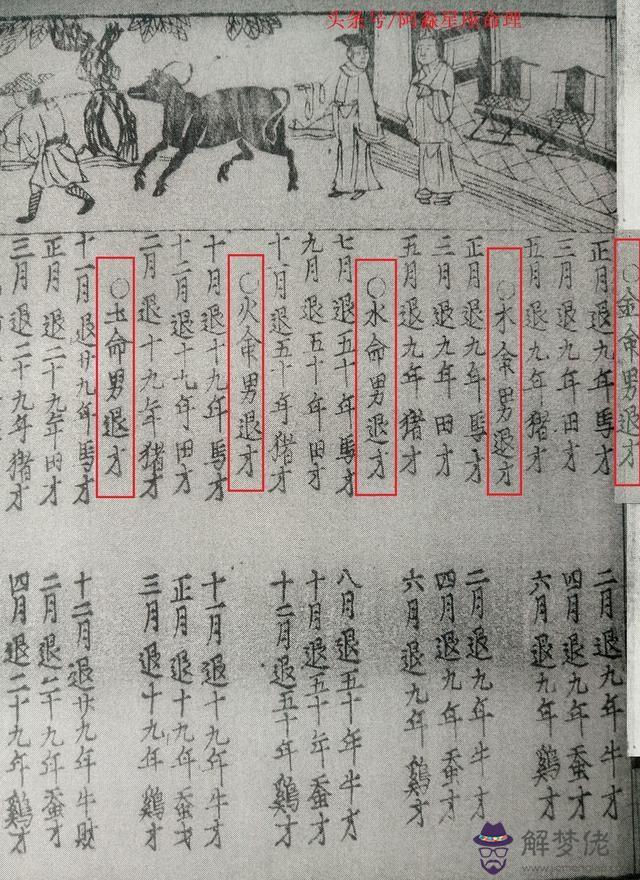 头条号/阿淼星座命理
○金命男退才
正月退九年馬才
三月退九年田才
五月退九年猪才
二月退九年牛才
四月退九年蚕才
六月退九年鷄才
○木命男退才
正月退九年馬才
三月退九年田才
五月退九年猪才
二月退九年牛才
四月退九年蚕才
六月退九年鷄才
○水命男退才
七月退五十年馬才
九月退五十年田才
十一月退五十年猪才
八月退五十年牛才
十月退五十年蚕才
十二月退五十年鷄才
○火命男退才
十月退十九年馬才
十二月退十九年田才
二月退十九年猪才
十一月退十九年牛才
正月退十九年蚕才
三月退十九年鷄才
○土命男退才
十一月退廿九年馬才
正月退二十九年田才
三月退二十九年猪才
十二月退廿九年牛財
二月退二十九年蚕才
四月退二十九年鷄才
解梦佬